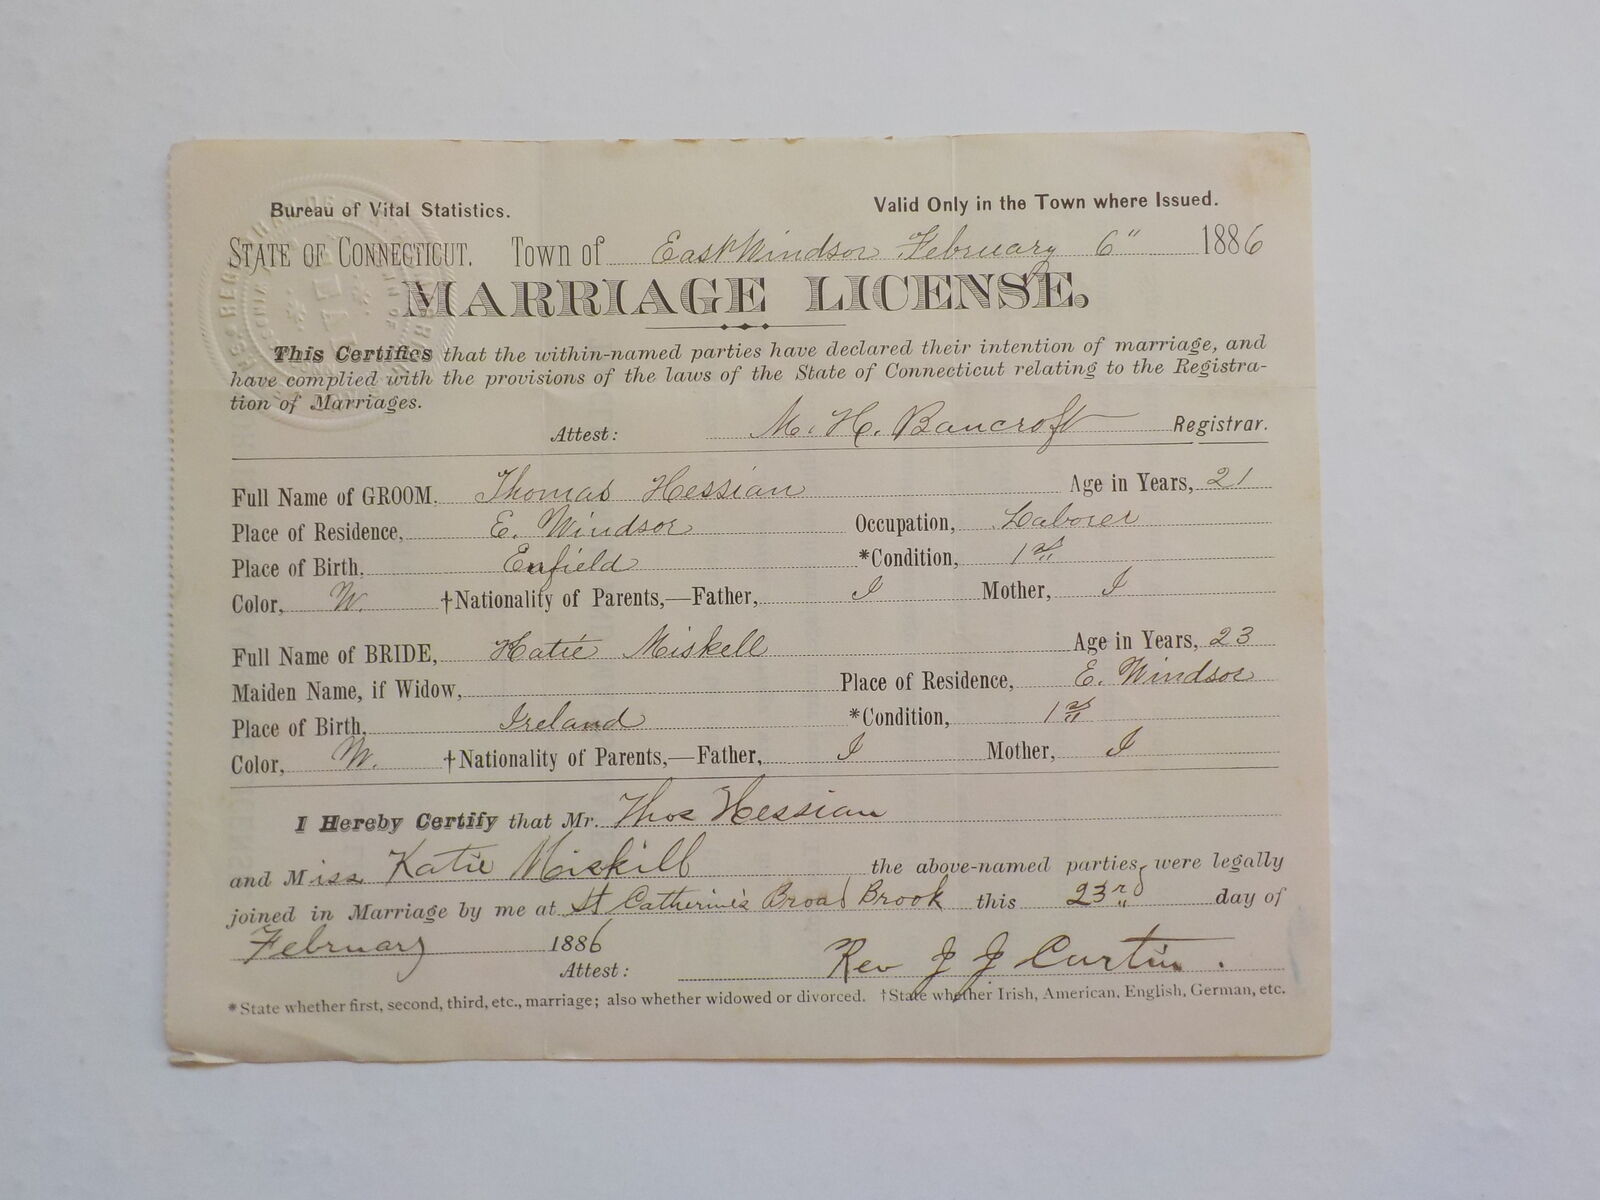 Bureau of Vital Statistics. Valid Only in the Town where Issued.
STATE OF CONNECTICUT. Town of East Windsor February 6" 1886
MARRIAGE LICENSE.
This Certifies that the within-named parties have declared their intention of marriage, and
have complied with the provisions of the laws of the State of Connecticut relating to the Registra-
tion of Marriages.
Attest: M. H. Bancroft Registrar.
Full Name of GROOM, Thomas Hessian Age in Years, 21
Place of Residence, E. Windsor Occupation, Laborer
Place of Birth, Enfield *Condition, 1st
Color, W. †Nationality of Parents,—Father, I Mother, I
Full Name of BRIDE, Katie Miskell Age in Years, 23
Maiden Name, if Widow, Place of Residence, E. Windsor
Place of Birth, Ireland *Condition, 1st
Color, W. †Nationality of Parents,—Father, I Mother, I
I Hereby Certify that Mr. Thos Hessian
and Miss Katie Miskill the above-named parties, were legally
joined in Marriage by me at St Catherine's Broad Brook this 23rd day of
February 1886
Attest: Rev J J Curtin.
*State whether first, second, third, etc., marriage; also whether widowed or divorced. †State whether Irish, American, English, German, etc.